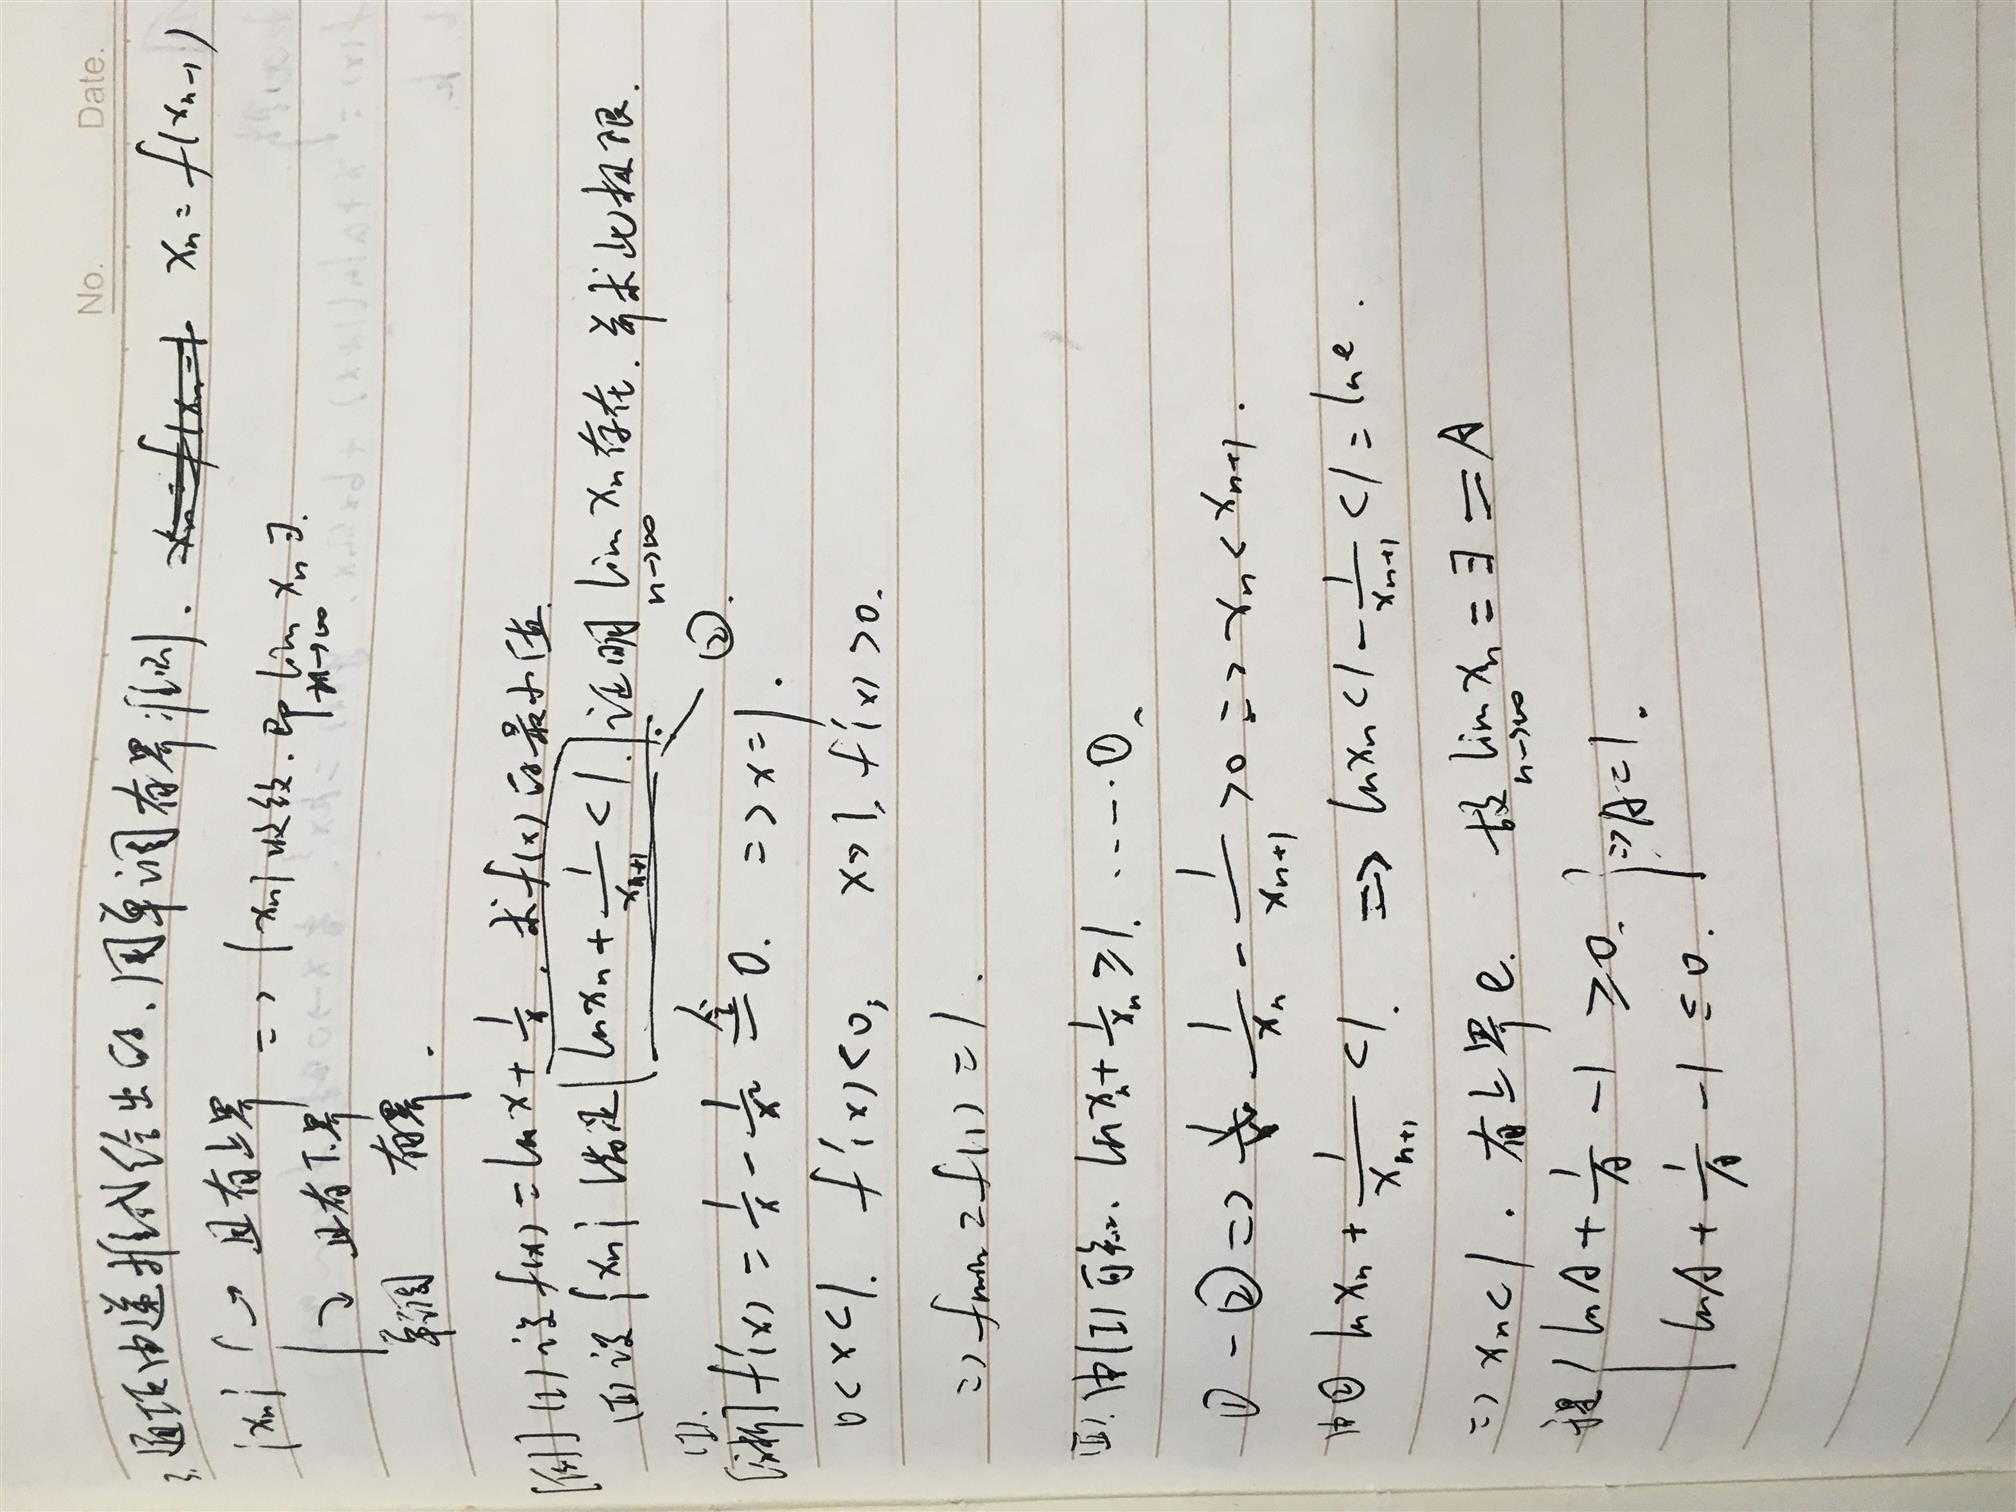 No. Date.
3. 通项由递推式给出的、用单调有界准则. x_n = f(x_{n-1})
{x_n} { ↗ 且有上界 => {x_n}收敛. 即 lim_{n→∞} x_n ∃.
↘ 且有下界
单调 有界.
[例] (1) 设 f(x) = ln x + 1/x. 求f(x)的最小值.
(2) 设 {x_n} 满足 ln x_n + 1/x_{n+1} < 1. 证明 lim_{n→∞} x_n 存在. 并求此极限.
②.
(1).
[解] f'(x) = 1/x - 1/x² 令= 0. => x = 1.
0 < x < 1. f'(x) < 0, x > 1, f'(x) > 0.
=> f_min = f(1) = 1.
(2). 由(1)可知. ln x_n + 1/x_n ≥ 1. ..... ①.
① - ② => 1/x_n - 1/x_{n+1} > 0 => x_n < x_{n+1}.
由② ln x_n + 1/x_{n+1} < 1. => ln x_n < 1 - 1/x_{n+1} < 1 = ln e.
=> x_n < 1. 有上界 e. 故 lim_{n→∞} x_n = ∃ = A
{ ln A + 1/A - 1 ≥ 0. } => A = 1.
ln A + 1/A - 1 ≤ 0.